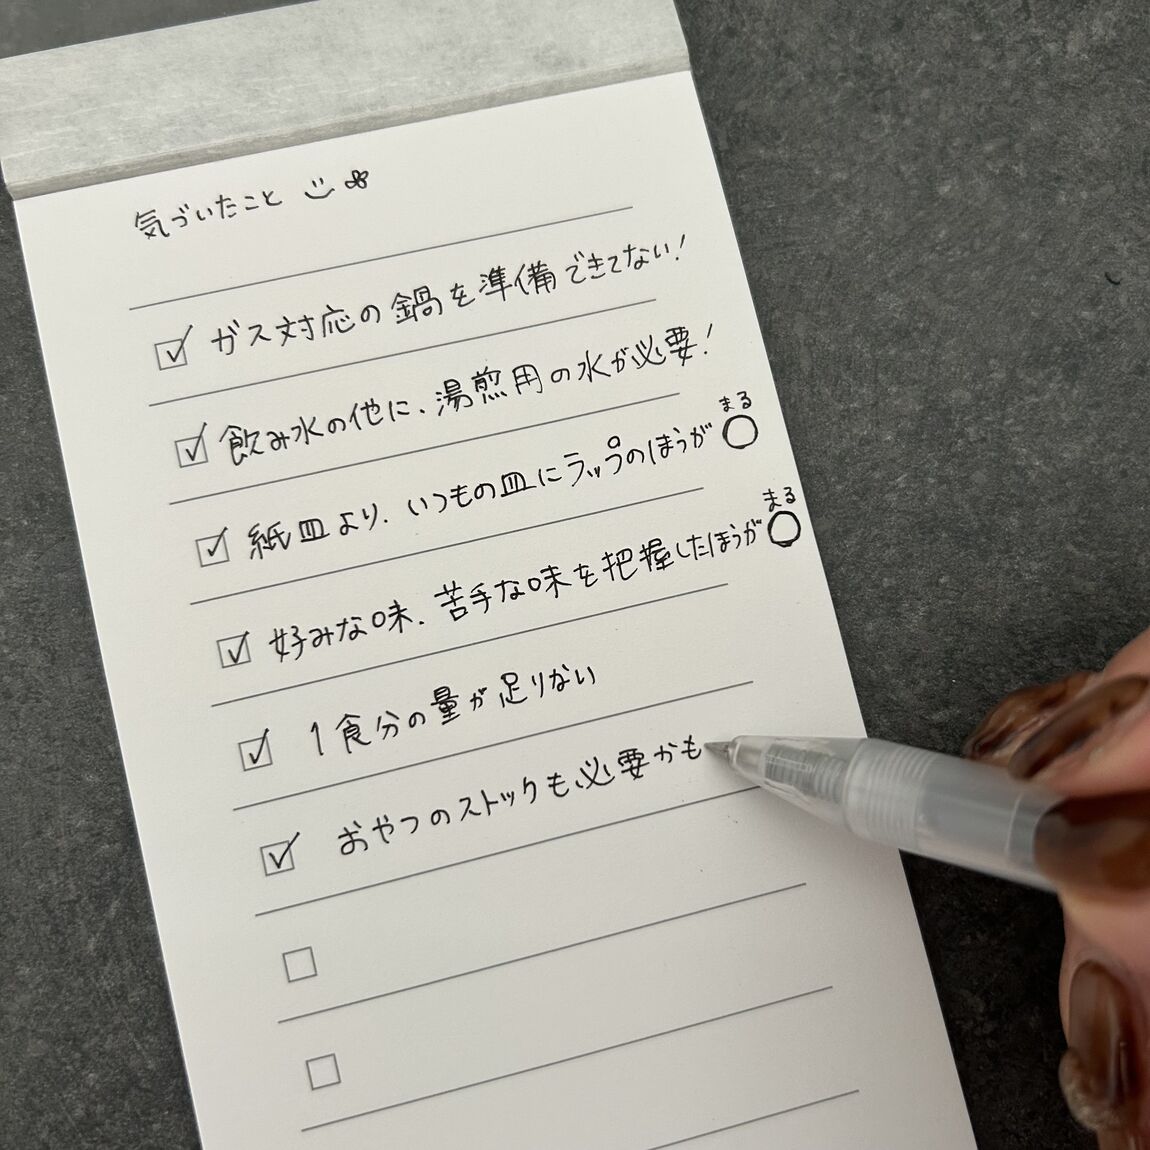 気づいたこと
ガス対応の鍋を準備できてない!
飲み水の他に、湯煎用の水が必要!
まる
紙皿より、いつもの皿にラップのほうが○
まる
好みな味、苦手な味を把握したほうが○
1食分の量が足りない
おやつのストックも必要かも